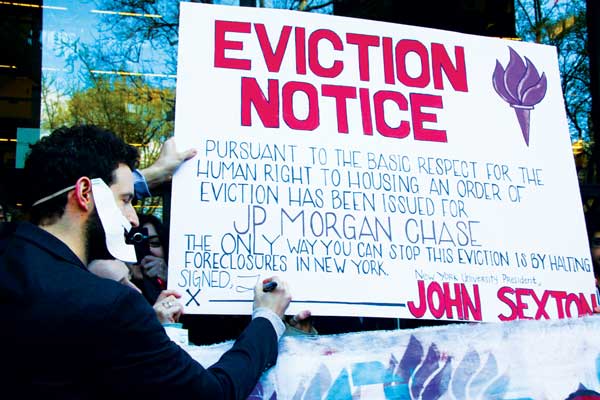 EVICTION
NOTICE
PURSUANT TO THE BASIC RESPECT FOR THE
HUMAN RIGHT TO HOUSING AN ORDER OF
EVICTION HAS BEEN ISSUED FOR
JP MORGAN CHASE
THE ONLY WAY YOU CAN STOP THIS EVICTION IS BY HALTING
FORECLOSURES IN NEW YORK.
SIGNED,
New York University President,
X JOHN SEXTON